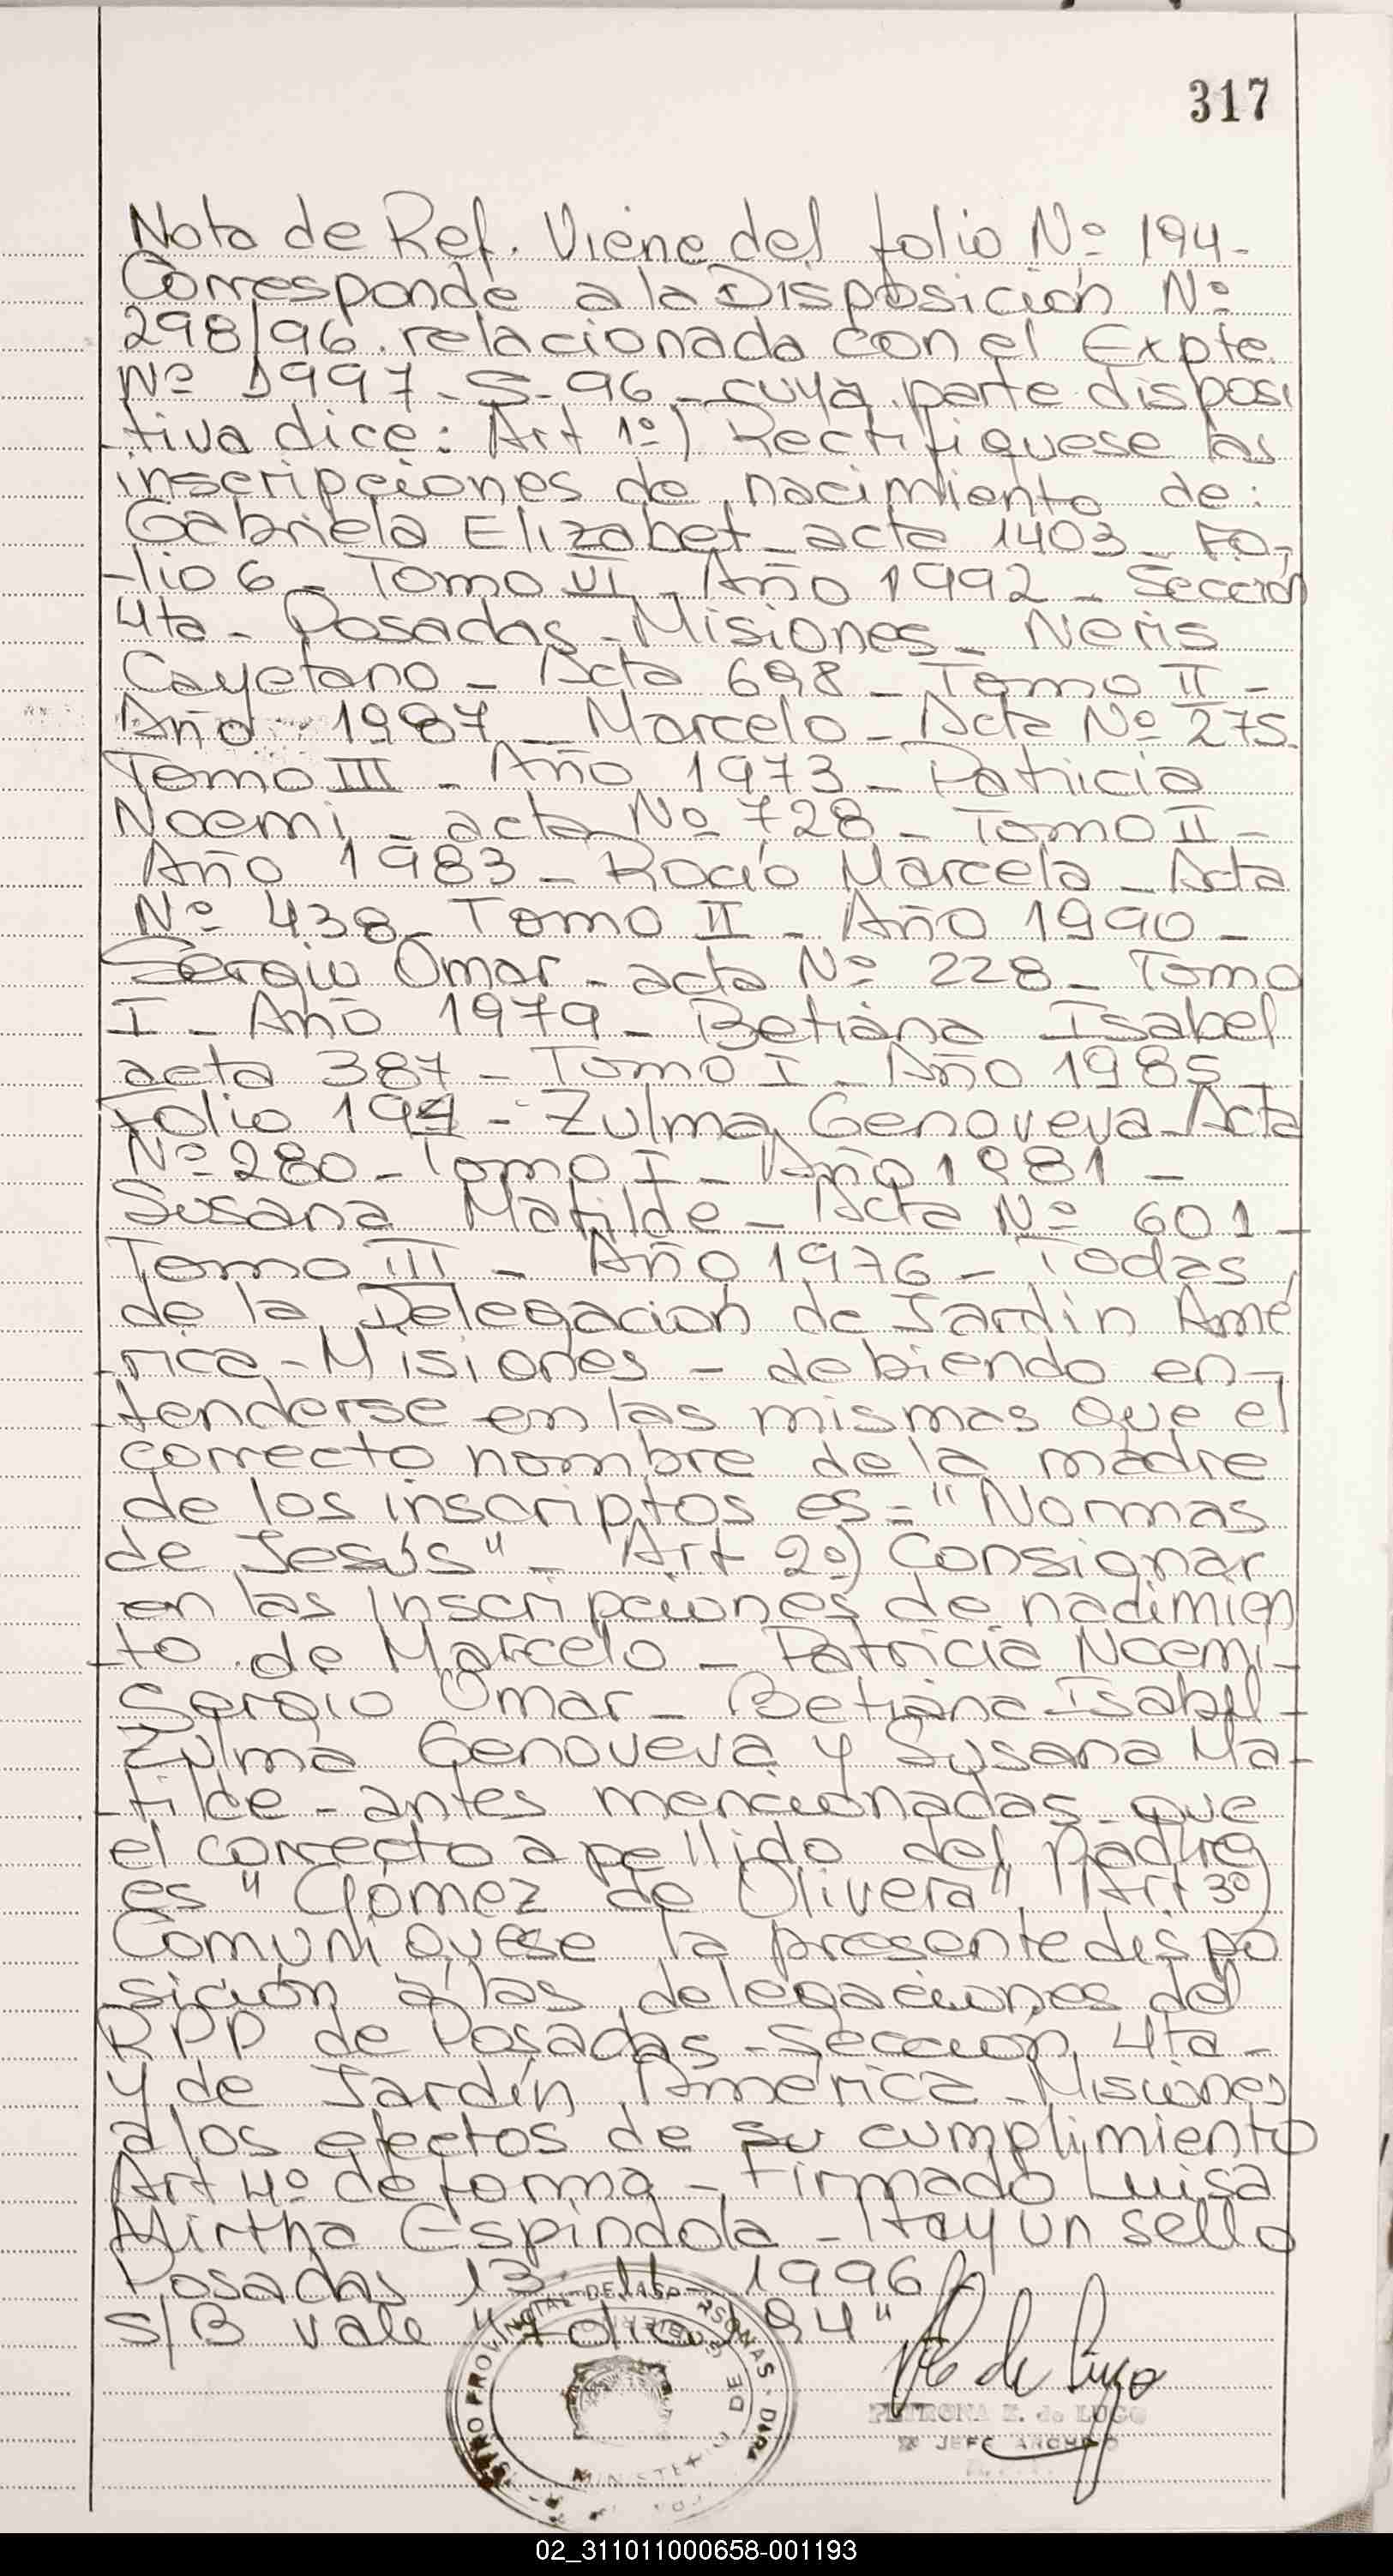 317
Nota de Ref. Viene del folio Nº 194-
Corresponde a la Disposición Nº
298/96. relacionada con el Expte.
Nº 1997-S-96- cuya parte disposi
-tiva dice: Art 1º) Rectifiquese las
inscripciones de nacimiento de:
Gabriela Elizabet- acta 1403- Fo-
-lio 6- Tomo VI- Año 1992- Sección
4ta- Posadas- Misiones- Neris
Cayetano- Acta 698- Tomo II-
Año 1987- Marcelo- Acta Nº 275.
Tomo III- Año 1973- Patricia
Noemi- acta Nº 728- Tomo II-
Año 1983- Rocío Marcela- Acta
Nº 438- Tomo II- Año 1990-
Sergio Omar- acta Nº 228- Tomo
I- Año 1979- Betiana Isabel
acta 387- Tomo I- Año 1985-
Folio 194- Zulma Genoveva- Acta
Nº 280- Tomo I- Año 1981-
Susana Matilde- Acta Nº 601-
Tomo III- Año 1976- Todas
de la Delegación de Jardín Amé
-rica- Misiones- debiendo en-
-tenderse en las mismas que el
correcto nombre de la madre
de los inscriptos es= "Normas
de Jesús"- Art 2º) Consignar
en las inscripciones de nacimien
-to de Marcelo- Patricia Noemi-
Sergio Omar- Betiana Isabel-
Zulma Genoveva y Susana Ma-
-tilde- antes mencionadas que
el correcto apellido del padre
es "Gómez de Olivera". Art 3º)
Comuniquese la presente dispo
sición a las delegaciones del
RPP de Posadas- Sección 4ta-
y de Jardín América- Misiones
a los efectos de su cumplimiento
Art 4º de forma- Firmado Luisa
Mirtha Espíndola- Hay un sello
Posadas 13-11-1996
S/B vale "Folio 194"
PETRONA Z. de LUGO
JEFE ARCHIVO
02_311011000658-001193